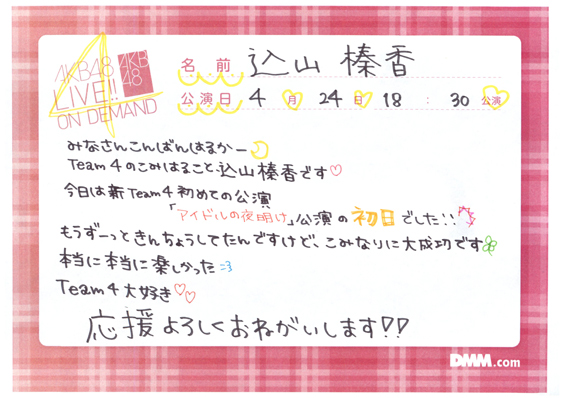 AKB48
LIVE!!
ON DEMAND
AKB
48
名前 込山 榛香
公演日 4月 24日 18:30公演
みなさんこんばんはるかー
Team4のこみはること込山榛香です♡
今日は新Team4初めての公演
「アイドルの夜明け」公演の初日でした!!
もうずーっときんちょうしてたんですけど、こみなりに大成功です
本当に本当に楽しかった :3
Team4大好き♡♡
応援よろしくおねがいします!!
DMM.com